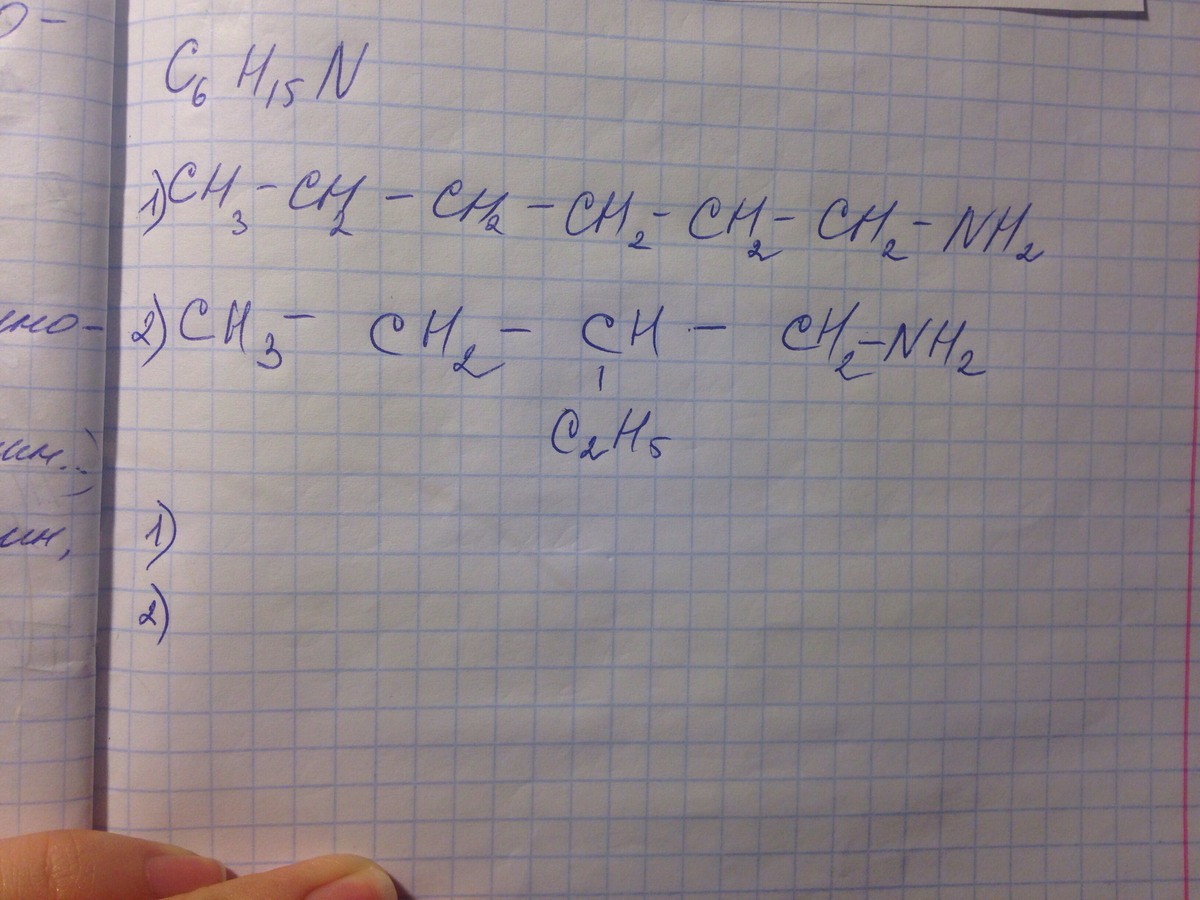 C₆H₁₅N
1) CH₃ – CH₂ – CH₂ – CH₂ – CH₂ – CH₂ – NH₂
2) CH₃ – CH₂ – CH – CH₂ – NH₂
|
C₂H₅
1)
2)